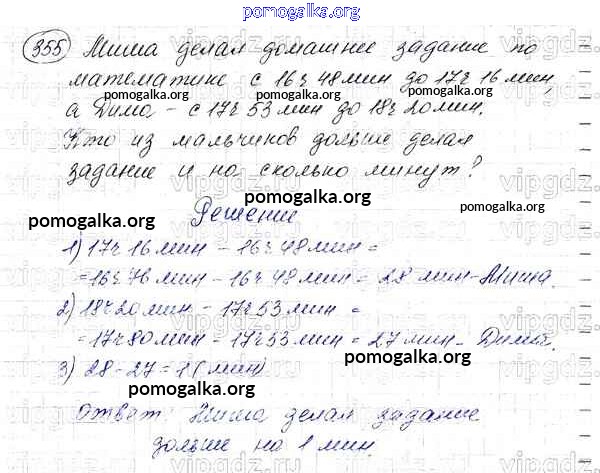 pomogalka.org
355 Миша делал домашнее задание по
математике с 16ч 48мин до 17ч 16мин,
а Дима - с 17ч 53мин до 18ч 20мин.
Кто из мальчиков дольше делал
задание и на сколько минут?
pomogalka.org
pomogalka.org
Решение
pomogalka.org
1) 17ч 16мин - 16ч 48мин =
= 16ч 76мин - 16ч 48мин = 28 мин - Миша.
pomogalka.org
2) 18ч 20мин - 17ч 53мин =
= 17ч 80мин - 17ч 53мин = 27мин - Дима.
pomogalka.org
3) 28-27=1(мин)
pomogalka.org
Ответ: Миша делал задание
дольше на 1 мин.
pomogalka.org